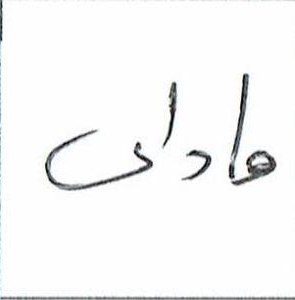 هادای